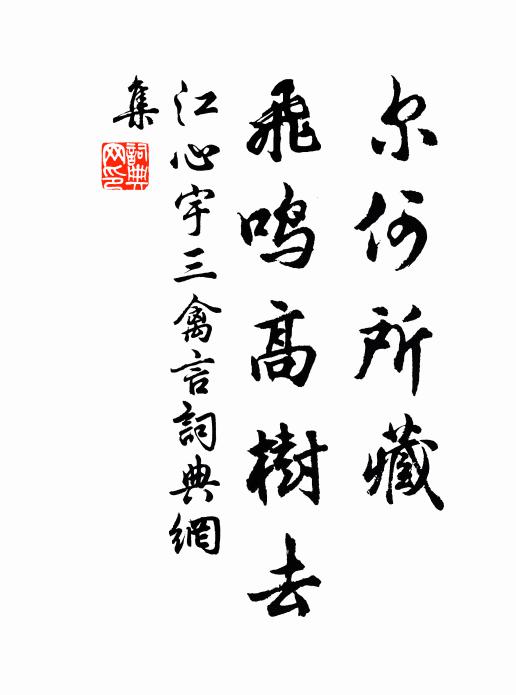 尔何所藏
飛鳴高樹去
江心宇三禽言詞典網
集
詞典網印